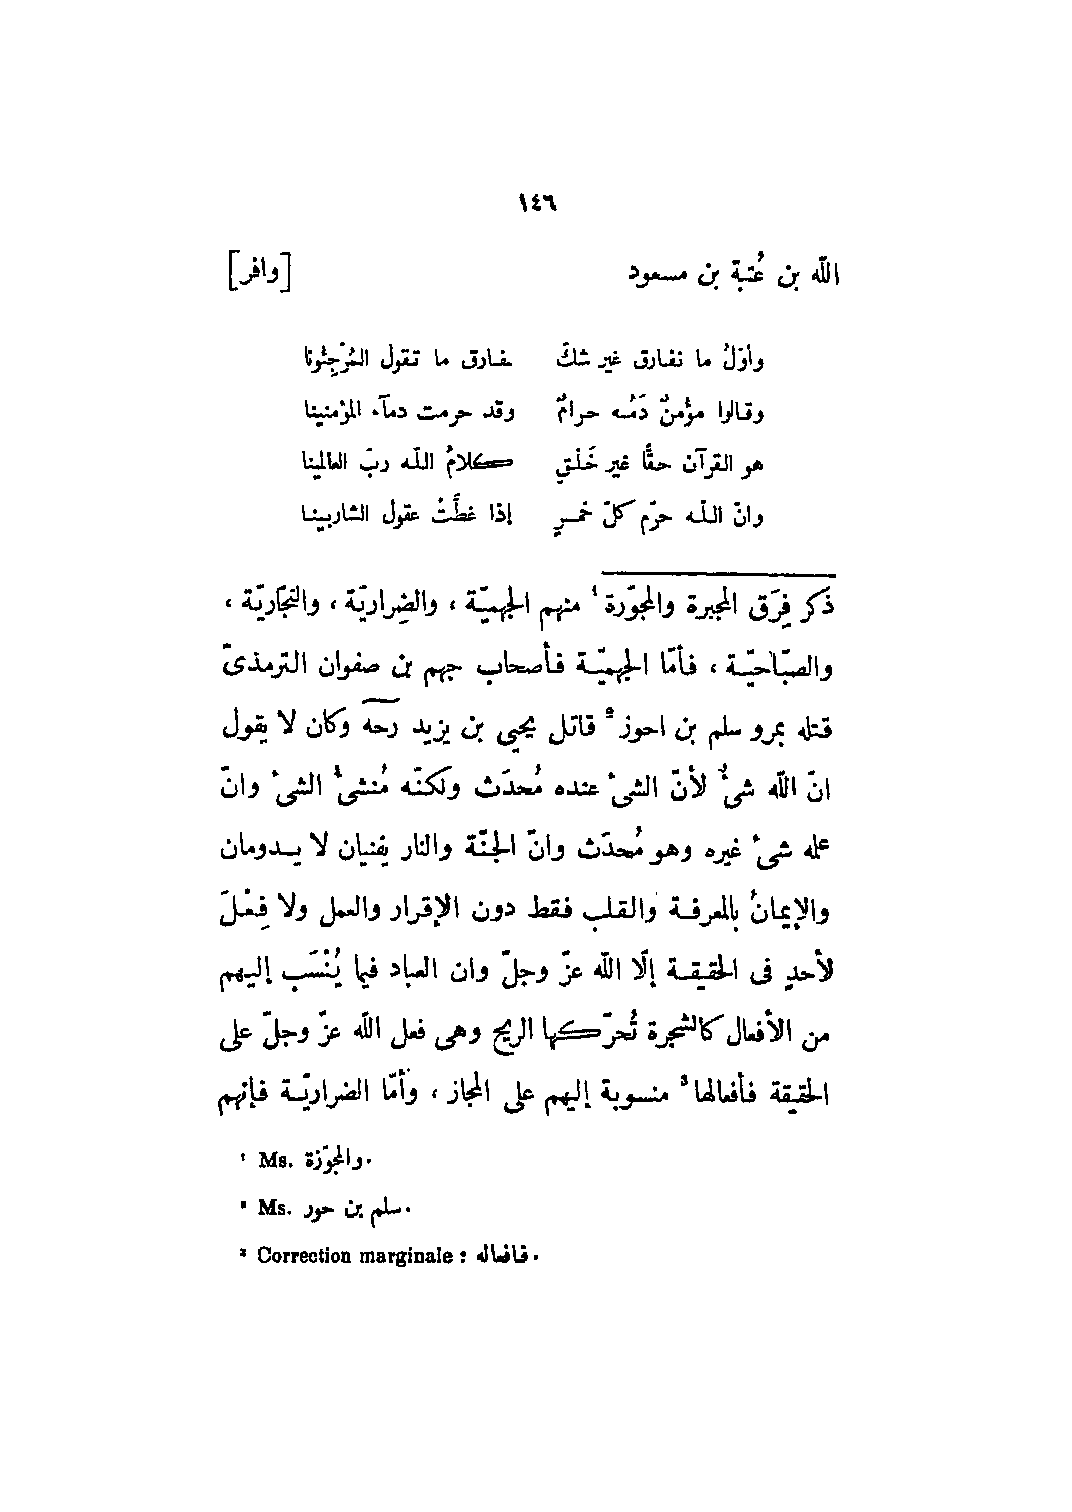 ١٤٦
الله بن عُتبة بن مسعود [وافر]
وأوّلُ ما نفارق غير شكّ نفارق ما تقول المُرْجِئُونا
وقالوا مؤمنٌ دَمُه حرامٌ وقد حرمت دمآء المؤمنينا
هو القرآن حقًّا غير خَلْقٍ كلامُ اللّه ربّ العالمينا
وانّ اللّه حرّم كلّ خمرٍ إذا غطَّتْ عقول الشاربينا
ذكر فِرَق المجبرة والمجوّرة ¹ منهم الجهميّة ، والضِراريّة ، والنجّاريّة ،
والصبّاحيّة ، فأمّا الجهميّة فأصحاب جهم بن صفوان الترمذىّ
قتله بمرو سلم بن احوز ² قاتل يحيى بن يزيد رحه وكان لا يقول
انّ الله شىءٌ لأنّ الشىء عنده مُحدَث ولكنّه مُنشئُ الشىء وانّ
علمه شىء غيره وهو مُحدَث وانّ الجنّة والنار يفنيان لا يدومان
والإيمانُ بالمعرفة والقلب فقط دون الإقرار والعمل ولا فِعْلَ
لأحدٍ فى الحقيقة إلّا اللّه عزّ وجلّ وان العباد فيما يُنْسَب إليهم
من الأفعال كالشجرة تُحرّكها الريح وهى فعل اللّه عزّ وجلّ على
الحقيقة فأفعالها ³ منسوبة إليهم على المجاز ، وأمّا الضراريّة فإنهم
¹ Ms. والمجوّزة.
² Ms. سلم بن حور.
³ Correction marginale : فافعاله.